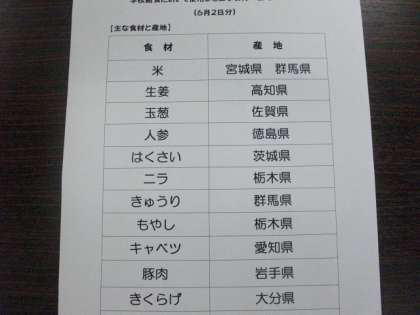 (6月2日分)
【主な食材と産地】
食材 産地
米 宮城県 群馬県
生姜 高知県
玉葱 佐賀県
人参 徳島県
はくさい 茨城県
ニラ 栃木県
きゅうり 群馬県
もやし 栃木県
キャベツ 愛知県
豚肉 岩手県
きくらげ 大分県